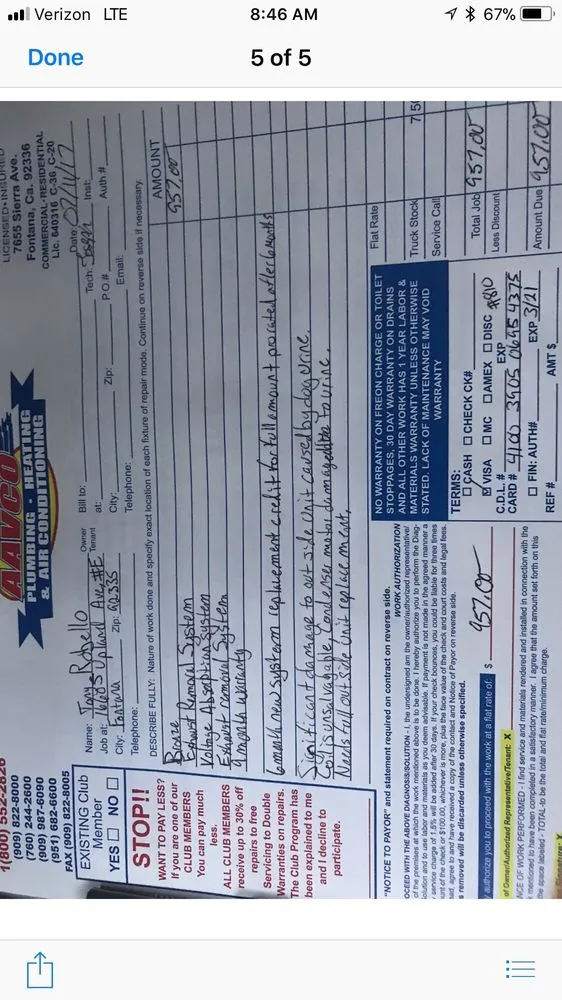 Verizon LTE
8:46 AM
67%
Done
5 of 5
1(800) 552-2826
(909) 822-8000
(760) 244-8600
(909) 487-6090
(951) 682-6600
FAX (909) 822-8005
AAVCO
PLUMBING - HEATING
& AIR CONDITIONING
LICENSED • INSURED
7655 Sierra Ave.
Fontana, Ca. 92336
COMMERCIAL • RESIDENTIAL
Lic. 640316 C-36, C-20
EXISTING Club
Member
YES NO
STOP!!
WANT TO PAY LESS?
If you are one of our
CLUB MEMBERS
You can pay much
less.
ALL CLUB MEMBERS
receive up to 30% off
repairs to free
Servicing to Double
Warranties on repairs.
The Club Program has
been explained to me
and I decline to
participate.
Name: Owner Tenant
Job at: Upland Ave #E
City: Fontana Zip: 92335
Telephone:
Bill to:
at:
City: Zip:
Telephone:
Date:
Tech: Inst:
P.O.# Auth.#
Email:
DESCRIBE FULLY: Nature of work done and specify exact location of each fixture of repair mode. Continue on reverse side if necessary.
AMOUNT
Braze 957.00
Exhaust Removal System
Voltage Absorbtion System
Exhaust removal System
9 month warranty
6 month new system replacement credit for full amount prorated after 6 months
Significant damage to out side unit caused by dog urine.
Coil is unsavable. Condenser motor damaged due to urine.
Needs full out side Unit replacement.
"NOTICE TO PAYOR" and statement required on contract on reverse side.
WORK AUTHORIZATION
OCEED WITH THE ABOVE DIAGNOSIS/SOLUTION - I, the undersigned am the owner/authorized representative/
of the premises at which the work mentioned above is to be done. I hereby authorize you to perform the Diag-
olution and to use labor and materials as you deem advisable. If payment is not made in the agreed manner a
service charge of 1.5% will be added after 30 days. If your check bounces, you could be liable for three times
unt of the check or $100.00, whichever is more, plus the face value of the check and court costs and legal fees.
ad, agree to and have received a copy of the contact and Notice of Payor on reverse side.
s removed will be discarded unless otherwise specified.
y authorize you to proceed with the work at a flat rate of: $ 957.00
of Owner/Authorized Representative/Tenant: X
NCE OF WORK PERFORMED - I find service and materials rendered and installed in connection with the
mentioned to have been completed in a satisfactory manner. I agree that the amount set forth on this
the space labeled - TOTAL-to be the total and flat rate/minimum charge.
Signature: X
NO WARRANTY ON FREON CHARGE OR TOILET
STOPPAGES, 30 DAY WARRANTY ON DRAINS
AND ALL OTHER WORK HAS 1 YEAR LABOR &
MATERIALS WARRANTY UNLESS OTHERWISE
STATED. LACK OF MAINTENANCE MAY VOID
WARRANTY
TERMS:
CASH CHECK CK#
VISA MC AMEX DISC
C.D.L. # EXP
CARD # [redacted] EXP [redacted]
FIN: AUTH#
REF # AMT $
Flat Rate
Truck Stock
Service Call
Total Job 957.00
Less Discount
Amount Due 957.00